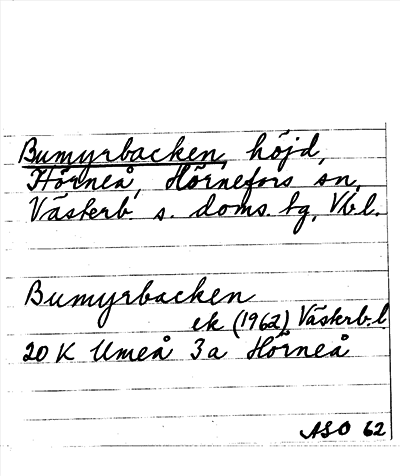 Bumyrbacken, höjd,
Hörneå, Hörnefors sn,
Västerb. s. doms. tg, Vb.l.
Bumyrbacken
ek (1962) Västerb.l
20 K Umeå 3a Hörneå
ASO 62